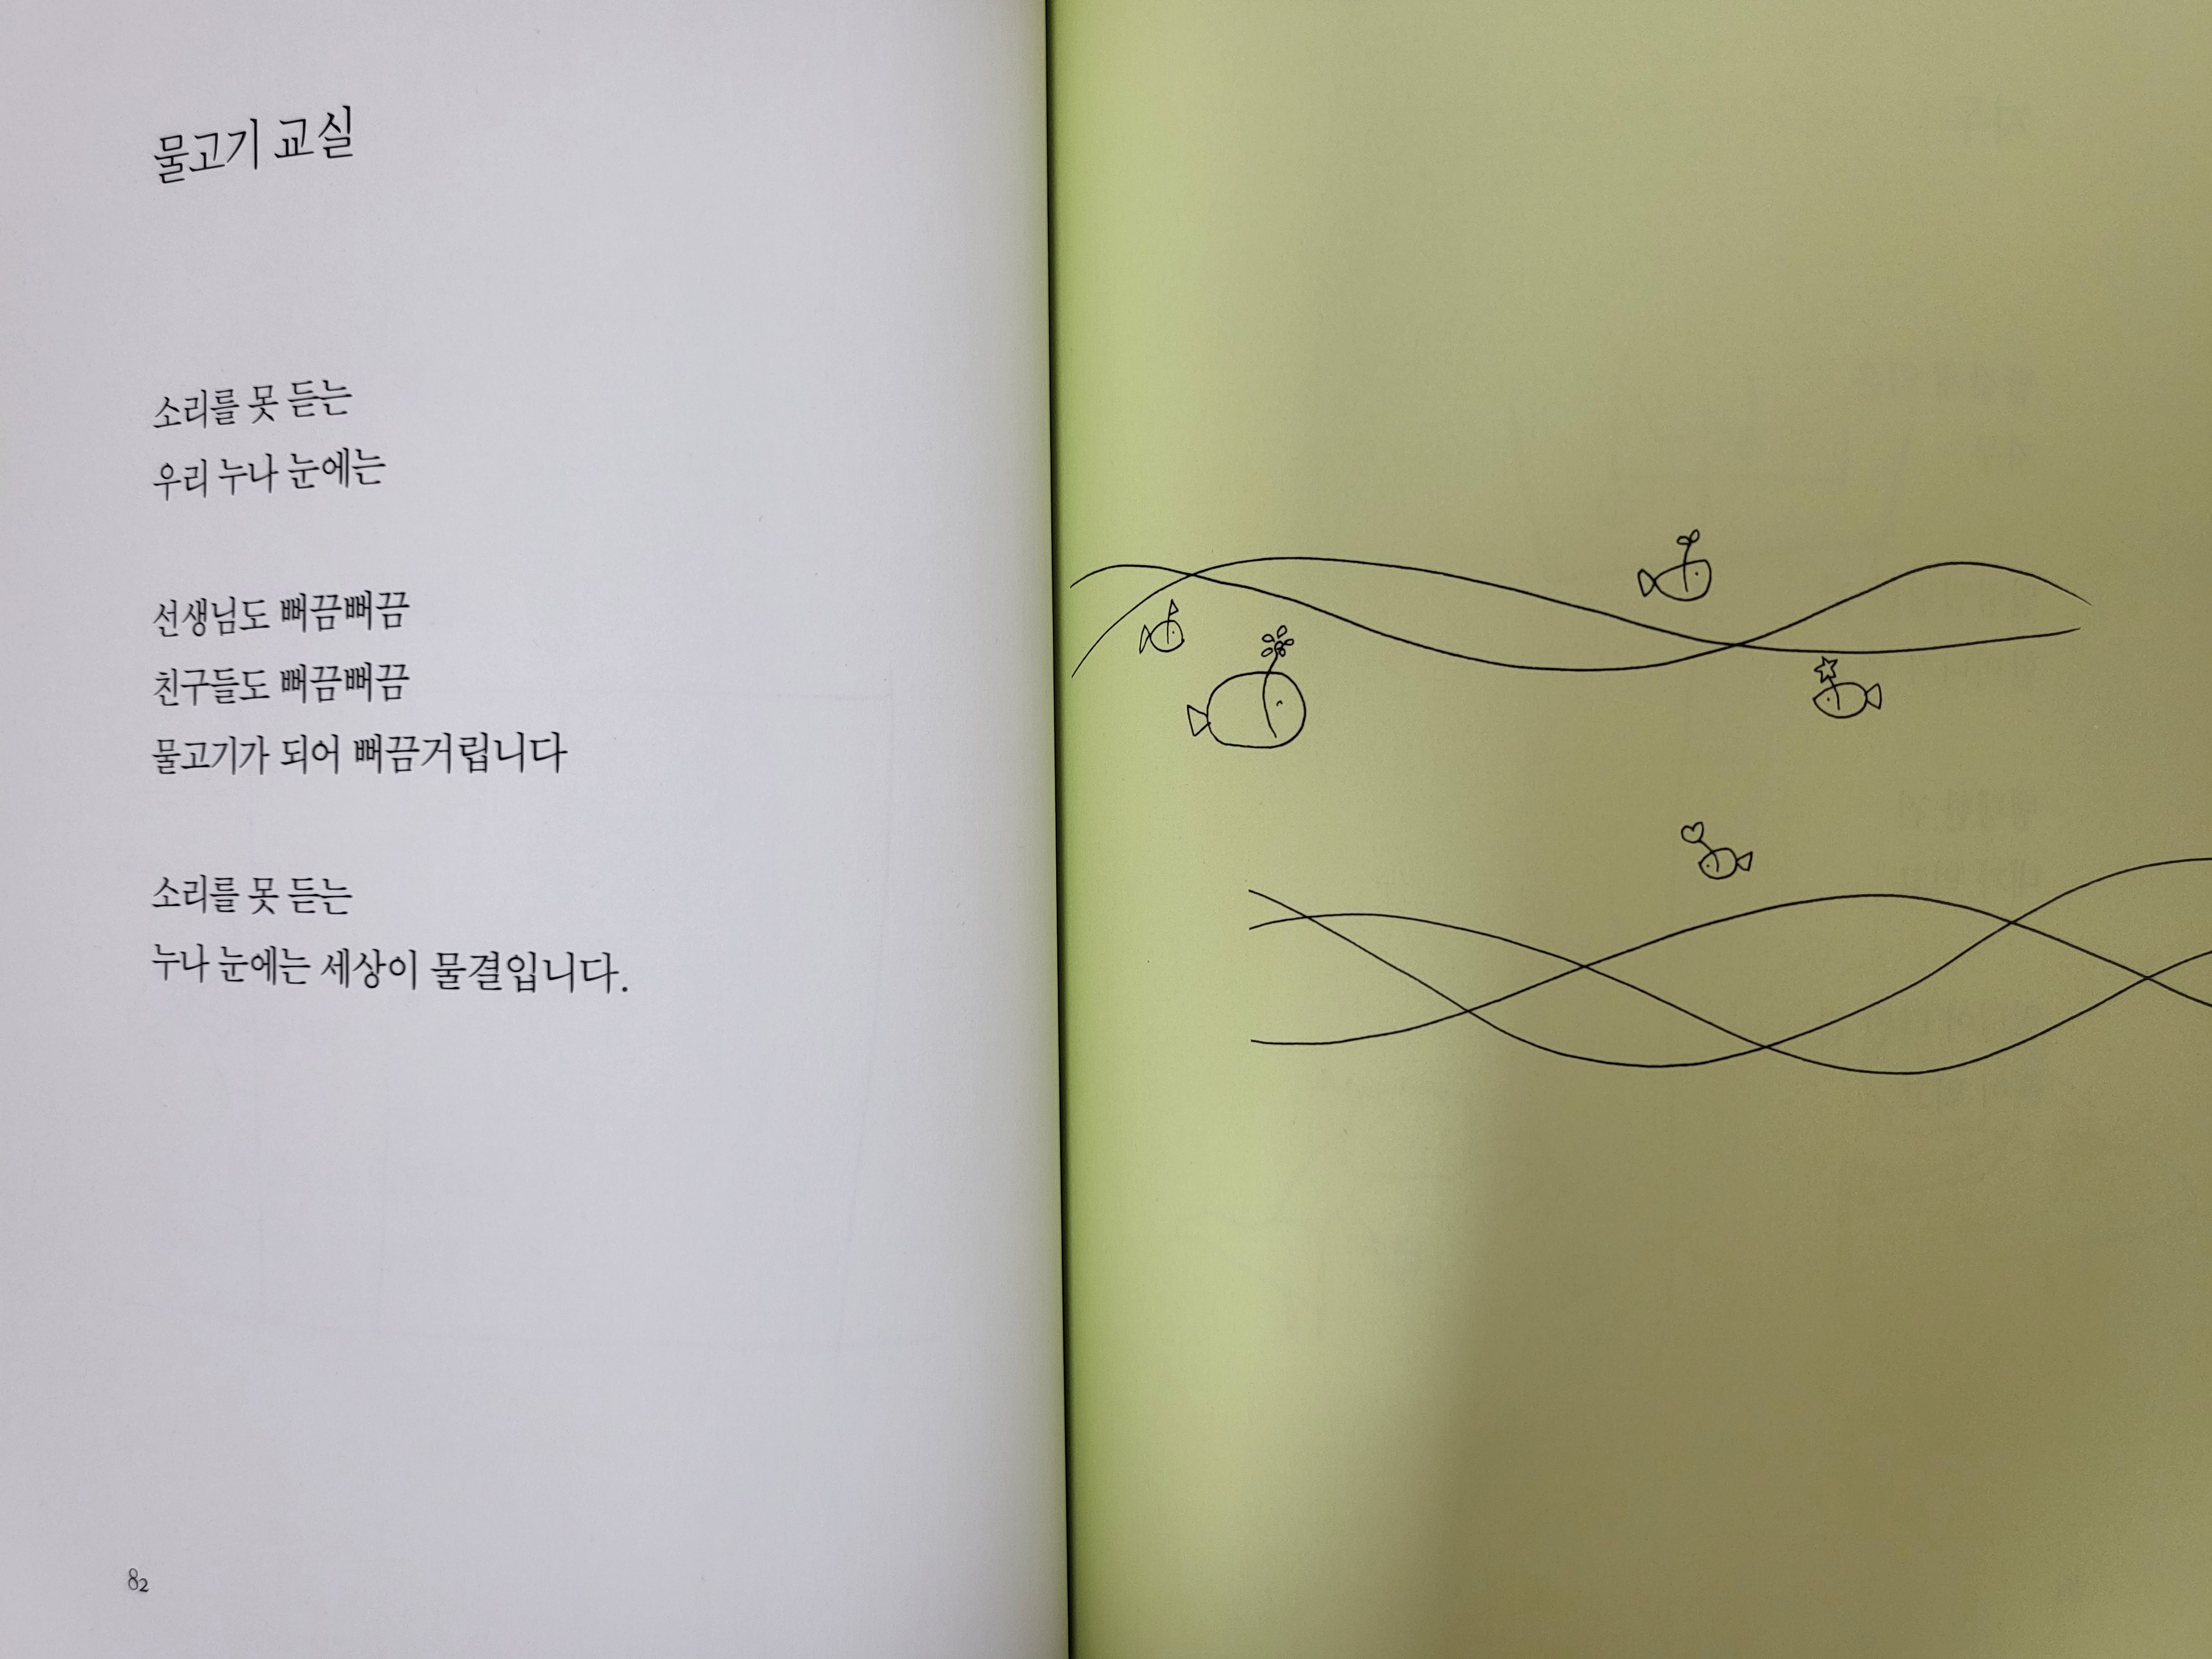 물고기 교실
소리를 못 듣는
우리 누나 눈에는
선생님도 뻐끔뻐끔
친구들도 뻐끔뻐끔
물고기가 되어 뻐끔거립니다
소리를 못 듣는
누나 눈에는 세상이 물결입니다.
82